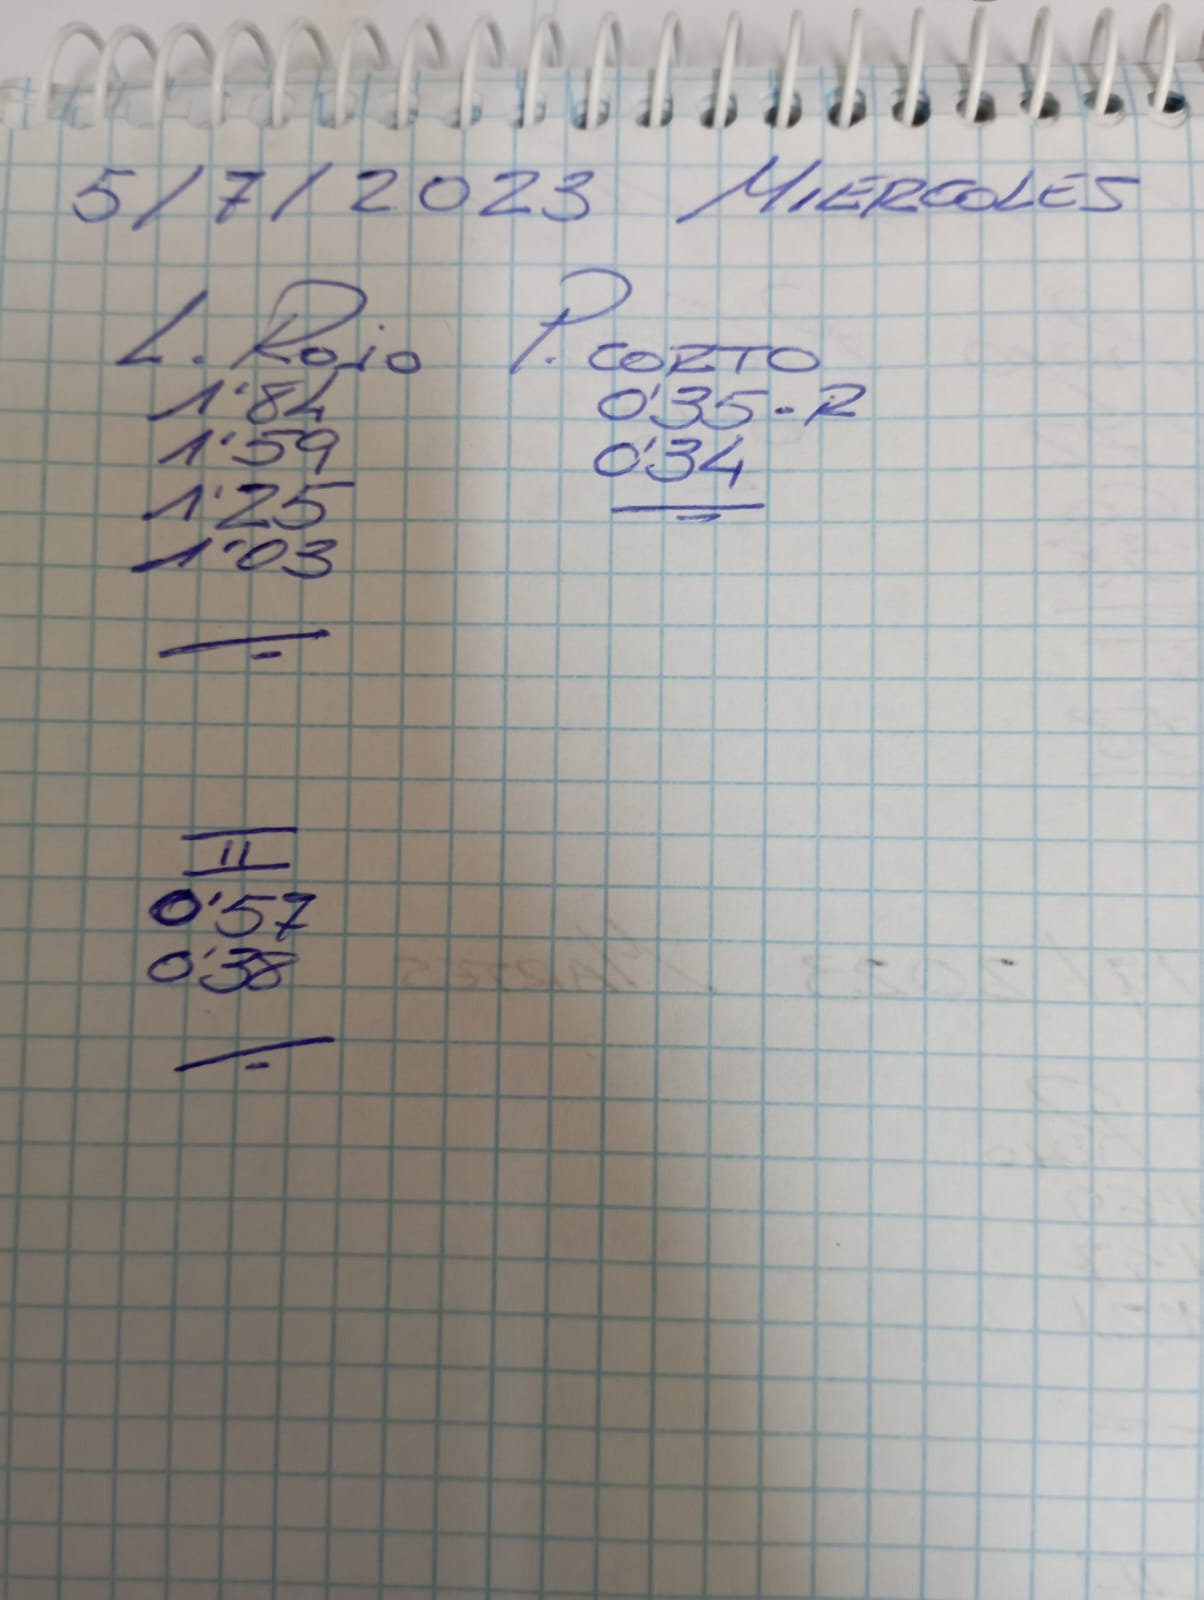 5/7/2023 MIERCOLES
L. Rojo
1'84
1'59
1'25
1'03
P. CORTO
0'35-R
0'34
II
0'57
0'38